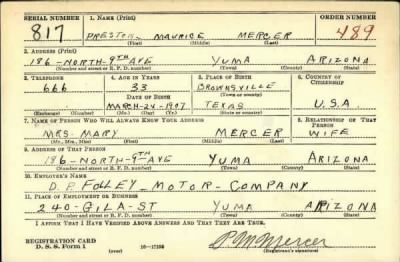 SERIAL NUMBER 1. NAME (Print) ORDER NUMBER
817 PRESTON MAURICE MERCER 489
(First) (Middle) (Last)
2. ADDRESS (Print)
186-NORTH-9TH AVE YUMA ARIZONA
(Number and street or R. F. D. number) (Town) (County) (State)
3. TELEPHONE 4. AGE IN YEARS 5. PLACE OF BIRTH 6. COUNTRY OF CITIZENSHIP
666 33 BROWNSVILLE
(Town or county)
DATE OF BIRTH
MARCH-24-1907 TEXAS U.S.A.
(Exchange) (Number) (Mo.) (Day) (Yr.) (State or country)
7. NAME OF PERSON WHO WILL ALWAYS KNOW YOUR ADDRESS 8. RELATIONSHIP OF THAT PERSON
MRS. MARY MERCER WIFE
(Mr., Mrs., Miss) (First) (Middle) (Last)
9. ADDRESS OF THAT PERSON
186-NORTH-9TH-AVE YUMA ARIZONA
(Number and street or R. F. D. number) (Town) (County) (State)
10. EMPLOYER'S NAME
D.P. FOLLEY-MOTOR-COMPANY
11. PLACE OF EMPLOYMENT OR BUSINESS
240-GILA-ST YUMA ARIZONA
(Number and street or R. F. D. number) (Town) (County) (State)
I AFFIRM THAT I HAVE VERIFIED ABOVE ANSWERS AND THAT THEY ARE TRUE.
REGISTRATION CARD
D. S. S. Form 1 (over) 16-17105 P.M. Mercer
(Registrant's signature)